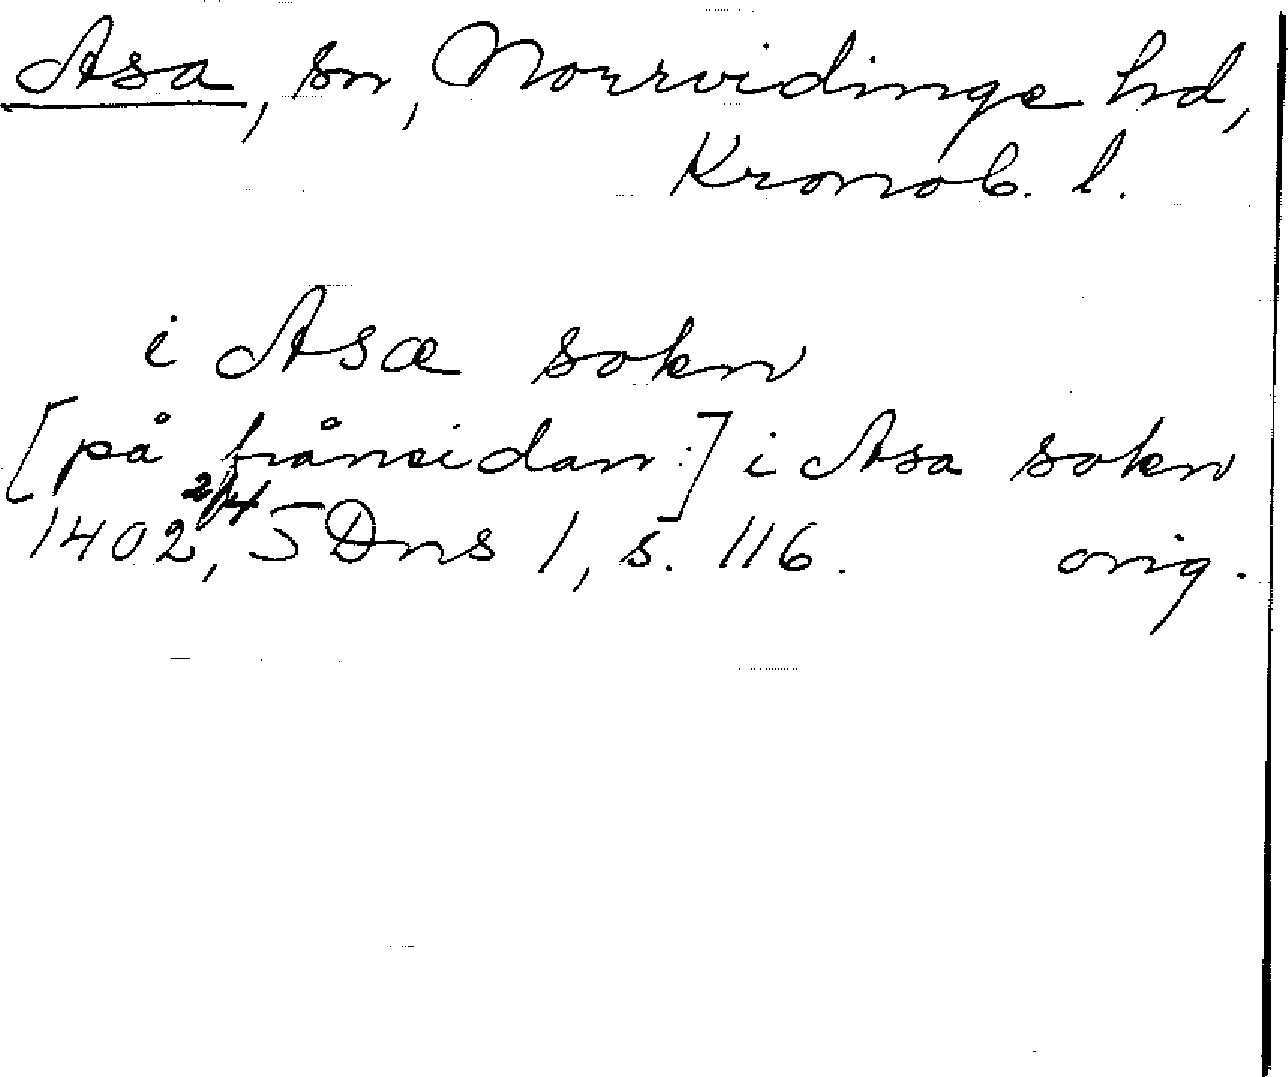 Asa, sn, Norrvidinge hd,
Kronob. l.
i Asæ sokn
[på frånsidan:] i Asa sokn
1402 2/4, SDns 1, s. 116. orig.